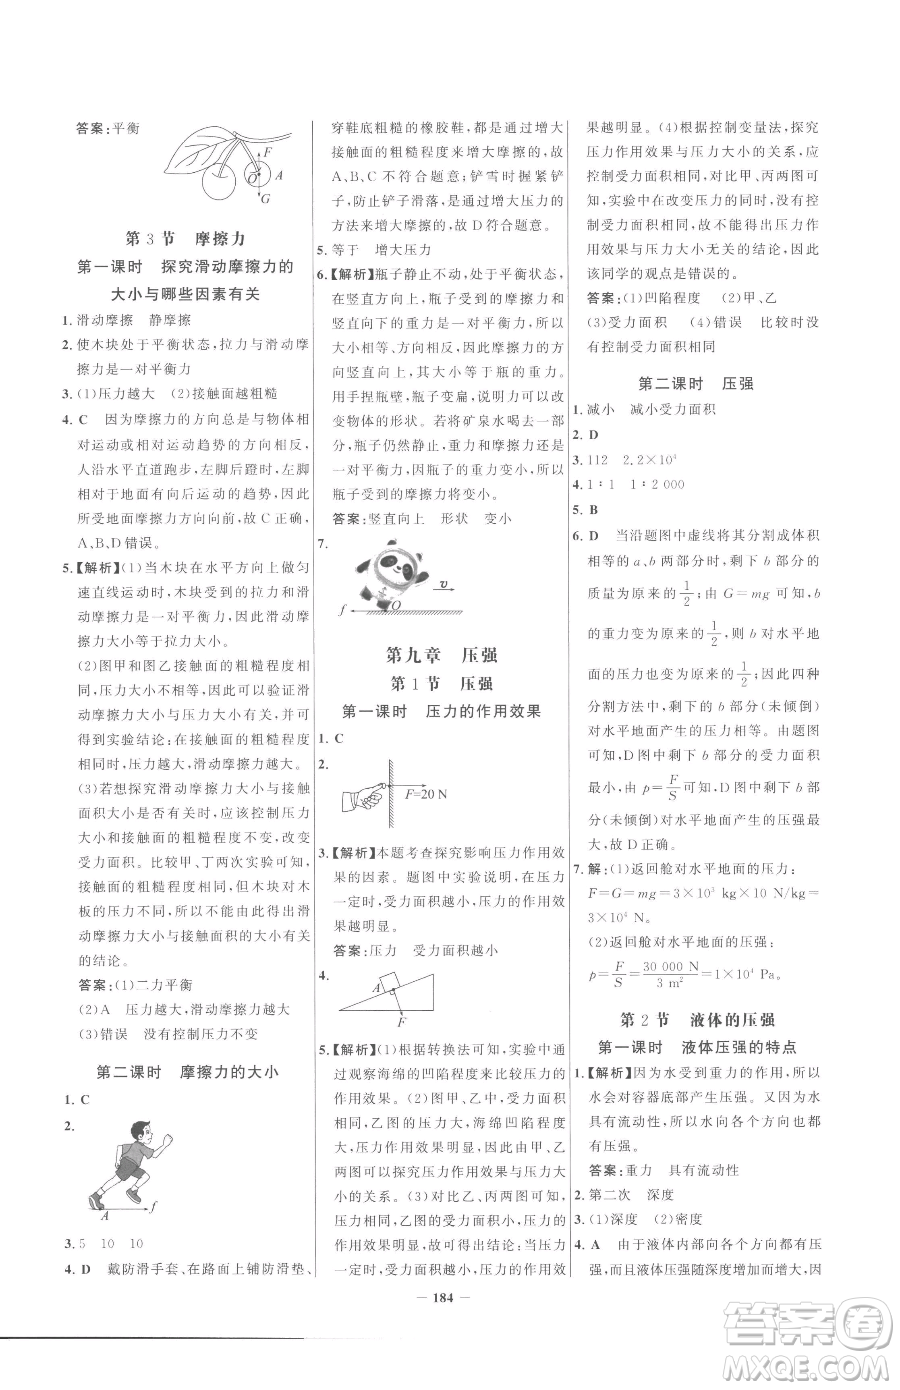 答案:平衡
F
O
A
G
第 3 节　摩擦力
第一课时　探究滑动摩擦力的
大小与哪些因素有关
1. 滑动摩擦　静摩擦
2. 使木块处于平衡状态,拉力与滑动摩
擦力是一对平衡力
3. (1)压力越大　(2)接触面越粗糙
4. C　因为摩擦力的方向总是与物体相
对运动或相对运动趋势的方向相反,
人沿水平直道跑步,左脚后蹬时,左脚
有相对于地面有向后运动的趋势,因此
所受地面摩擦力方向向前,故 C 正确,
A、B、D 错误。
5.【解析】(1)当木块在水平方向上做匀
速直线运动时,木块受到的拉力与受
到的摩擦力是一对平衡力,因此滑动摩
擦力大小等于拉力大小。
(2)图甲和图乙接触面的粗糙程度相
同,压力大小不同,因此可以验证滑动
摩擦力大小与压力大小有关,并可以
得到实验结论:在接触面的粗糙程度
相同时,压力越大,滑动摩擦力越大。
(3)若想探究滑动摩擦力大小与接触
面积大小是否有关时,应该控制压力
大小和接触面的粗糙程度不变,改变
受力面积。比较甲、丁两次实验可知,
接触面的粗糙程度相同,但木块对木
板的压力不同,所以不能得出滑
动摩擦力大小与接触面积的大小有关
的结论。
答案:(1)二力平衡
(2)A　压力越大,滑动摩擦力越大
(3)错误　没有控制压力不变
第二课时　摩擦力的大小
1. C
2.
A
f
3. 5　10　10
4. D　戴防滑手套、在路面上铺防滑垫、
穿鞋底粗糙的橡胶鞋,都是通过增大
接触面的粗糙程度来增大摩擦的,故
A、B、C 不符合题意;铲雪时握紧铲
子,防止铲子滑落,是通过增大压力的
方法来增大摩擦的,故 D 符合题意。
5. 等于　增大压力
6.【解析】瓶子静止不动,处于平衡状态,
在竖直方向上,瓶子受到的摩擦力和
竖直方向上的重力是一对平衡力,所以
摩擦力的大小等于瓶的重力,方向
与重力的方向相反,即摩擦力的方向
为竖直向上,大小等于瓶的重力大小。
用手捏瓶时,瓶子变扁,故力可以改
变物体的形状。若将矿泉水喝去一
部分,瓶子仍然静止,重力和摩擦力还是
一对平衡力,因瓶子的重力变小,所以
瓶子所受的摩擦力将变小。
答案:竖直向上　形状　变小
7.
v
f
O
第九章　压强
第 1 节　压强
第一课时　压力的作用效果
1. C
2.
F=20 N
3.【解析】本题考查探究影响压力作用效
果的因素。题图中实验说明,在压力
一定时,受力面积越小,压力的作用效
果越明显。
答案:压力　受力面积越小
4.
A
F
5.【解析】(1)根据转换法可知,实验中通
过观察海绵的凹陷程度来比较压力的
作用效果。(2)甲、乙两图中,受力面积
相同,乙图的压力大,海绵凹陷程度
大,压力作用效果明显,所以由甲、乙
两图可以探究压力的作用效果与压力大
小的关系。(3)对比乙、丙两次实验,
压力相同,乙图的受力面积小,海绵凹
陷程度大,说明压力的作用效果与受
力面积大小有关,且得到的实验结论是:
压力一定时,受力面积越小,压力作用效
果越明显。(4)根据控制变量法,探究
压力作用效果与压力大小的关系,应
控制受力面积相同,改变压力大小,
通过对比甲、丙两图可知,实验中没有控
制受力面积相同,故不能得出压力作
用效果与压力大小无关的结论,因此
该同学的观点是错误的。
答案:(1)凹陷程度　(2)甲、乙
(3)受力面积　(4)错误　比较时没
有控制受力面积相同
第二课时　压强
1. 减小　减小受力面积
2. D
3. 112　2.2×10⁴
4. 1∶1　1∶2 000
5. B
6. D　当沿题图中虚线将其分割成体积
相等的 a、b 两部分时,剩下 b 部分的
质量为原来的1/2,由 G=mg 可知,b
的重力变为原来的1/2,则 b 对水平地
面的压力为原来的1/2,因此四种
分割方法中,剩下的 b 部分(未倾倒)
对水平地面产生的压力相等。由题图
可知,D 图中剩下 b 部分的受力面积
最小,由 p=F/S可知,D 图中剩下 b 部
分(未倾倒)对水平地面产生的压强最
大,故 D 正确。
7. 解:(1)返回舱对水平地面的压力:
F=G=mg=3×10³ kg×10 N/kg=
3×10⁴ N。
(2)返回舱对水平地面的压强:
p=F/S=30 000 N/3 m²=1×10⁴ Pa。
第 2 节　液体的压强
第一课时　液体压强的特点
1.【解析】因为水受到重力的作用,所以
水会对容器底部产生压强。又因为水
具有流动性,所以水向各个方向也都
有压强。
答案:重力　具有流动性
2. 第二次　深度
3. (1)深度　(2)密度
4. A　由于液体内部向各个方向都有压
强,而且液体压强随深度增大而增大,因
— 184 —
答案圈
MXQE.COM